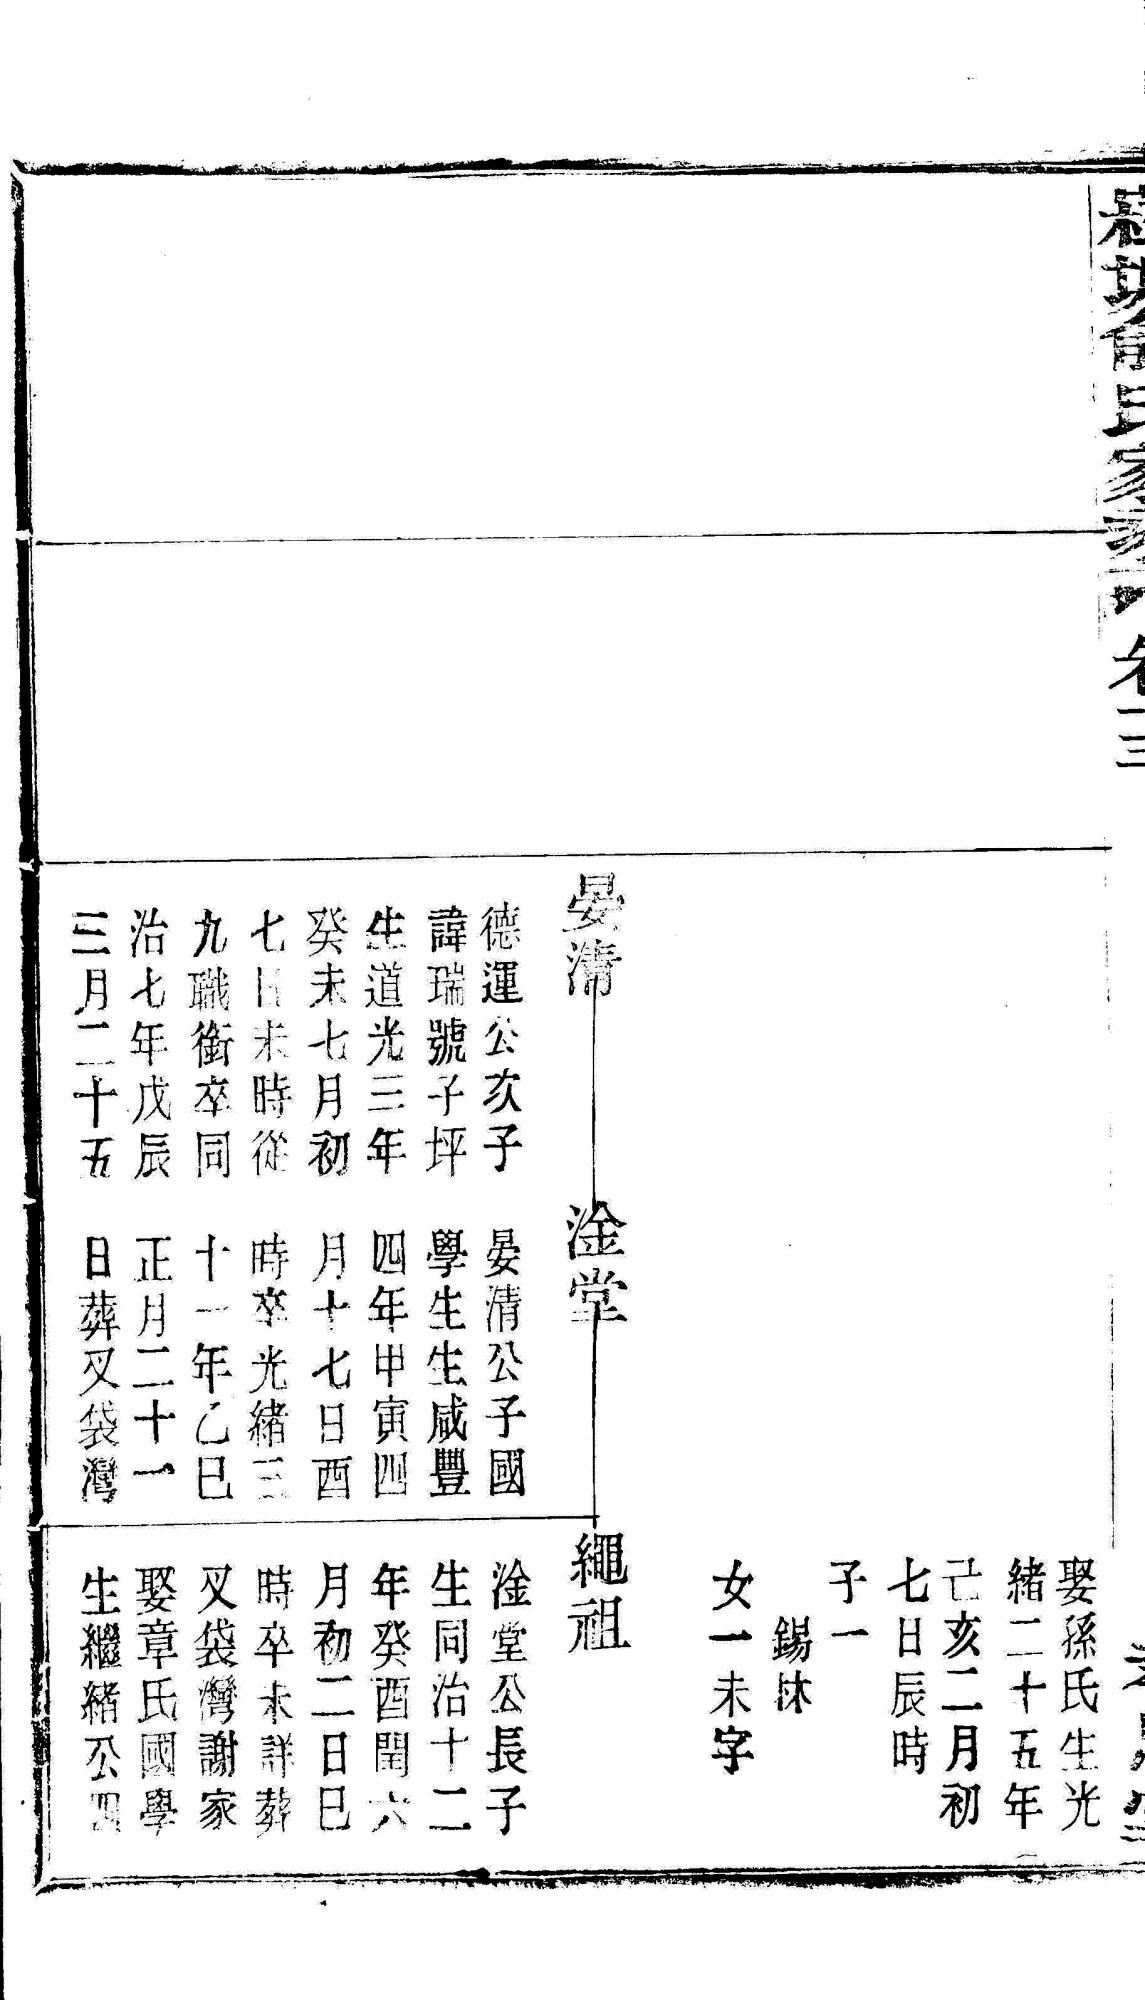 氏家
卷三
娶孫氏生光
緒二十五年
己亥二月初
七日辰時
子一
錫
女一未字
晏清
德運公次子
諱瑞號子坪
生道光三年
癸未七月初
七日未時從
九職銜卒同
治七年戊辰
三月二十五
淦堂
晏清公子國
學生生咸豐
四年甲寅四
月十七日酉
時卒光緒三
十一年乙巳
正月二十一
日葬叉袋灣
繩祖
淦堂公長子
生同治十二
年癸酉閏六
月初二日巳
時卒未詳葬
叉袋灣謝家
娶章氏國學
生繼緒公四